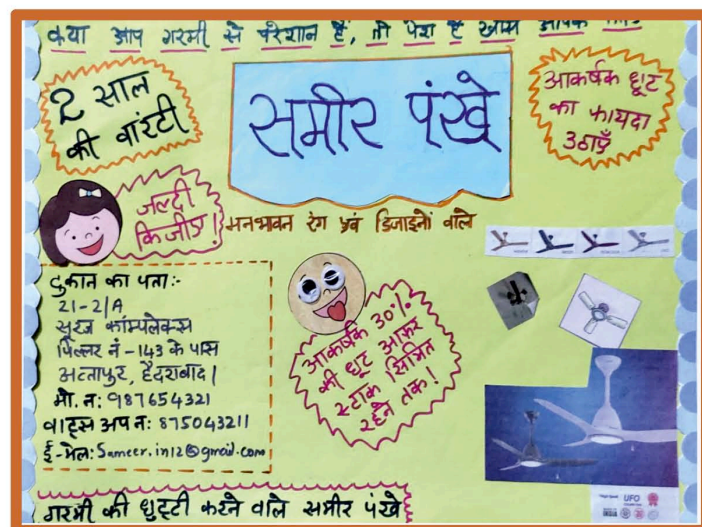 क्या आप गरमी से परेशान हैं, तो पेश है खास आपके लिए
2 साल
की वारंटी
समीर पंखे
आकर्षक छूट
का फायदा
उठाएँ
जल्दी
किजीए!
मनभावन रंग एवं डिजाइनों वाले
दुकान का पता:-
21-2/A
सूरज कॉम्पलेक्स
पिल्लर नं-143 के पास
अत्तापुर, हैदराबाद।
मो. न: 987654321
वाट्स अप न: 875043211
ई-मेल: Sameer.in12@gmail.com
आकर्षक 30%
की छूट आफर
स्टाक सिमित
रहने तक!
गरमी की छुट्टी करने वाले समीर पंखे
UFO